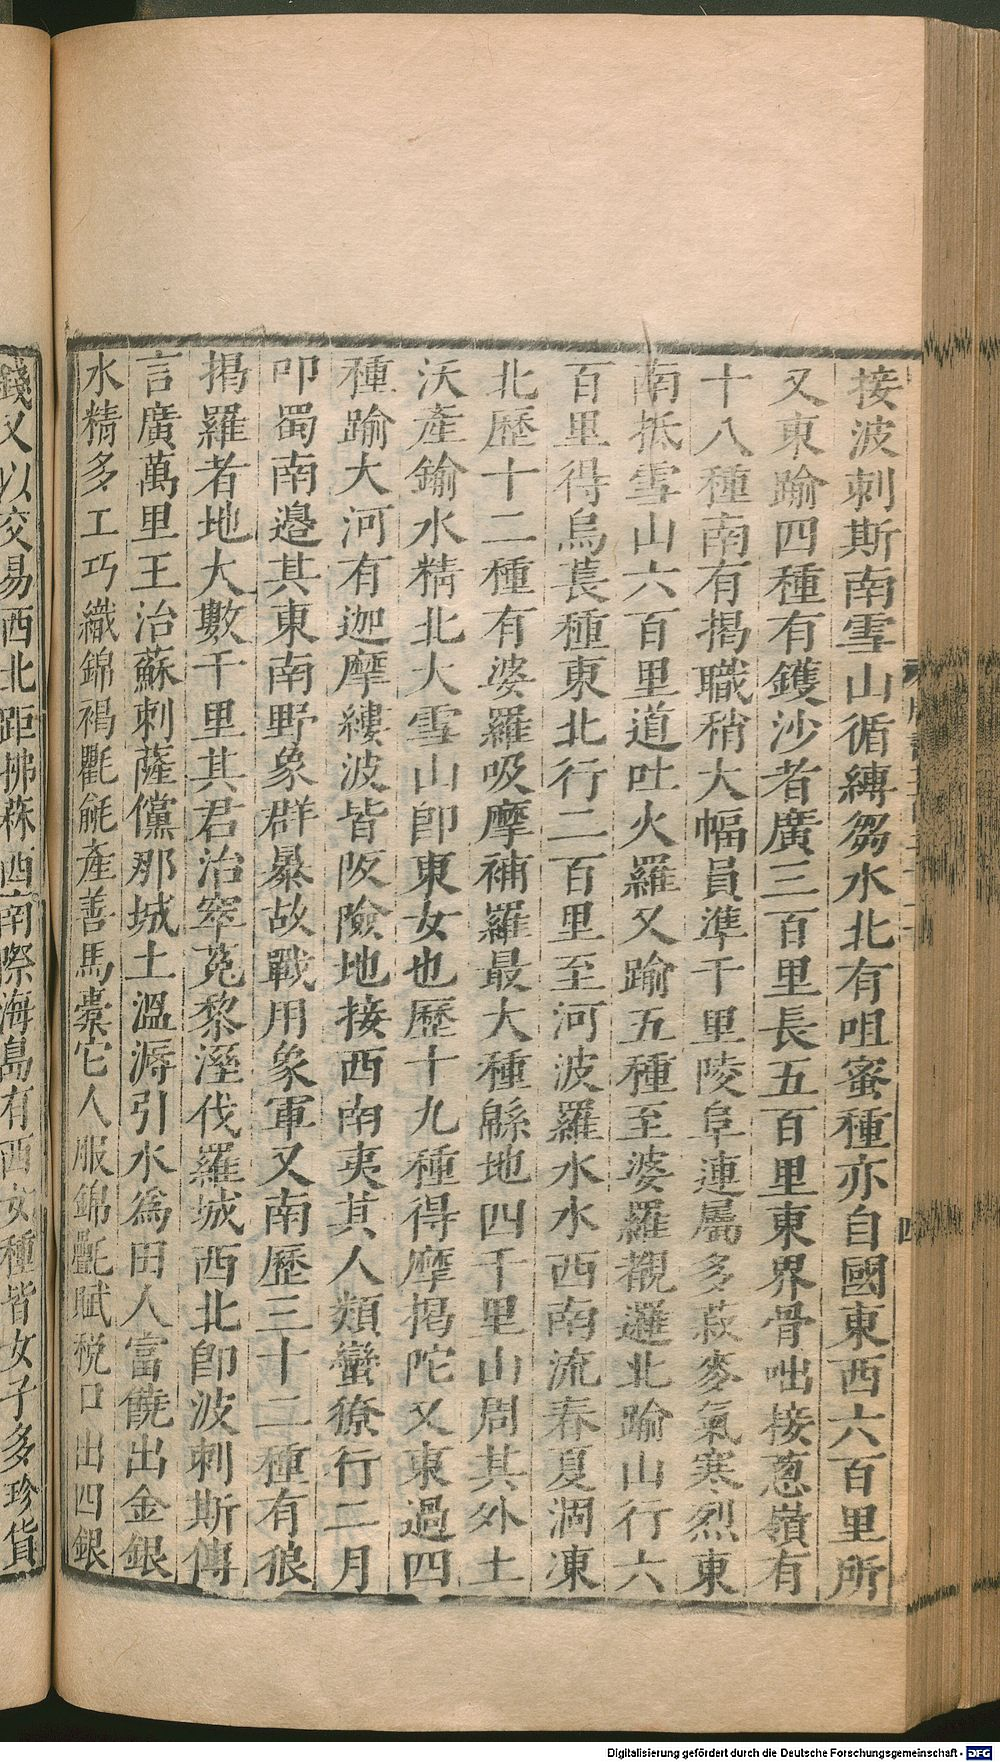 接波剌斯南雪山循縛芻水北有咀蜜種亦自國東西六百里所
又東踰四種有鑊沙者廣三百里長五百里東界骨咄接蔥嶺有
十八種南有揭職稍大幅員準千里陵阜連屬多菽麥氣寒烈東
南抵雪山六百里道吐火羅又踰五種至婆羅覩邏北踰山行六
百里得烏萇種東北行二百里至河波羅水水西南流春夏涸凍
北歷十二種有婆羅吸摩補羅最大種緜地四千里山周其外土
沃產鍮水精北大雪山卽東女也歷十九種得摩揭陀又東過四
種踰大河有迦摩縷波皆阪險地接西南夷其人類蠻獠行二月
叩蜀南邊其東南野象群暴故戰用象軍又南歷三十二種有狼
揭羅者地大數千里其君治窣菟黎溼伐羅城西北卽波剌斯傳
言廣萬里王治蘇剌薩儻那城土溫溽引水爲田人富饒出金銀
水精多工巧織錦褐氍毹產善馬橐它人服錦氎賦稅口出四銀
錢又以交易西北距拂菻西南際海島有西女種皆女子多珍貨
Digitalisierung gefördert durch die Deutsche Forschungsgemeinschaft - DFG